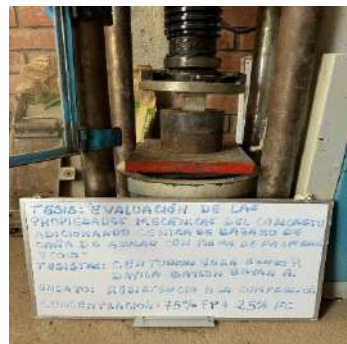 TESIS: EVALUACIÓN DE LAS
PROPIEDADES MECÁNICAS DEL CONCRETO
ADICIONANDO CENIZA DE BAGAZO DE
CAÑA DE AZUCAR CON FIBRA DE
TESISTAS: CENTURION
DAVILA BAYRON A.
ENSAYO: RESISTENCIA A LA COMPRESION
CONCENTRACION: 75% FP + 25% FC